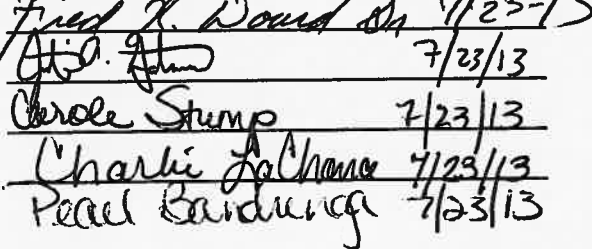 Fred K. Dowd 7/23-13
7/23/13
Carole Stump 7/23/13
Charlie LaChance 7/23/13
Pearl 7/23/13